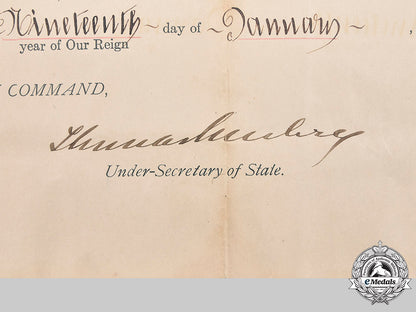 Nineteenth ~ day of ~ January ~ ,
year of Our Reign
COMMAND,
Under-Secretary of State.
eMedals